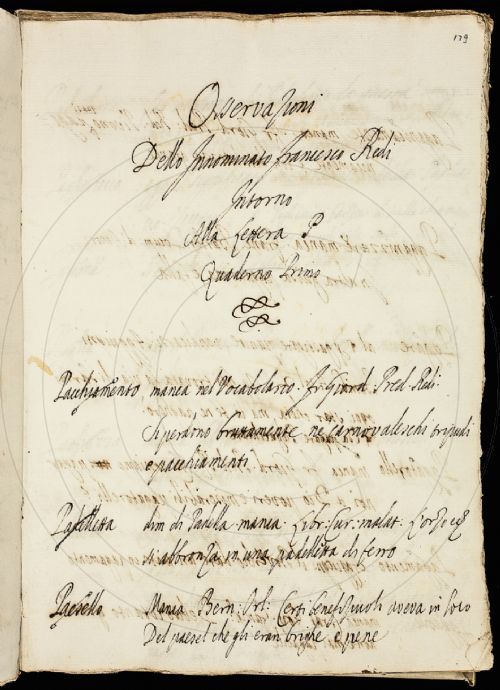 179
Osservazioni
Dello Innominato Francesco Redi
Intorno
Alla Lettera P
Quaderno Primo
Pacchiamento manca nel Vocabolario. Fr: Giord. Pred. Redi.
Si perdono bruttamente ne carnovaleschi tripudi
e pacchiamenti
Padelletta dim. di Padella manca. Libr: Cur: malat: L'orzo
si abbronza in una padelletta di ferro
Paesello Manca Bern: Orl: Certi benefizuoli aveva in loco
Del paesel che gli eran brighe e pene